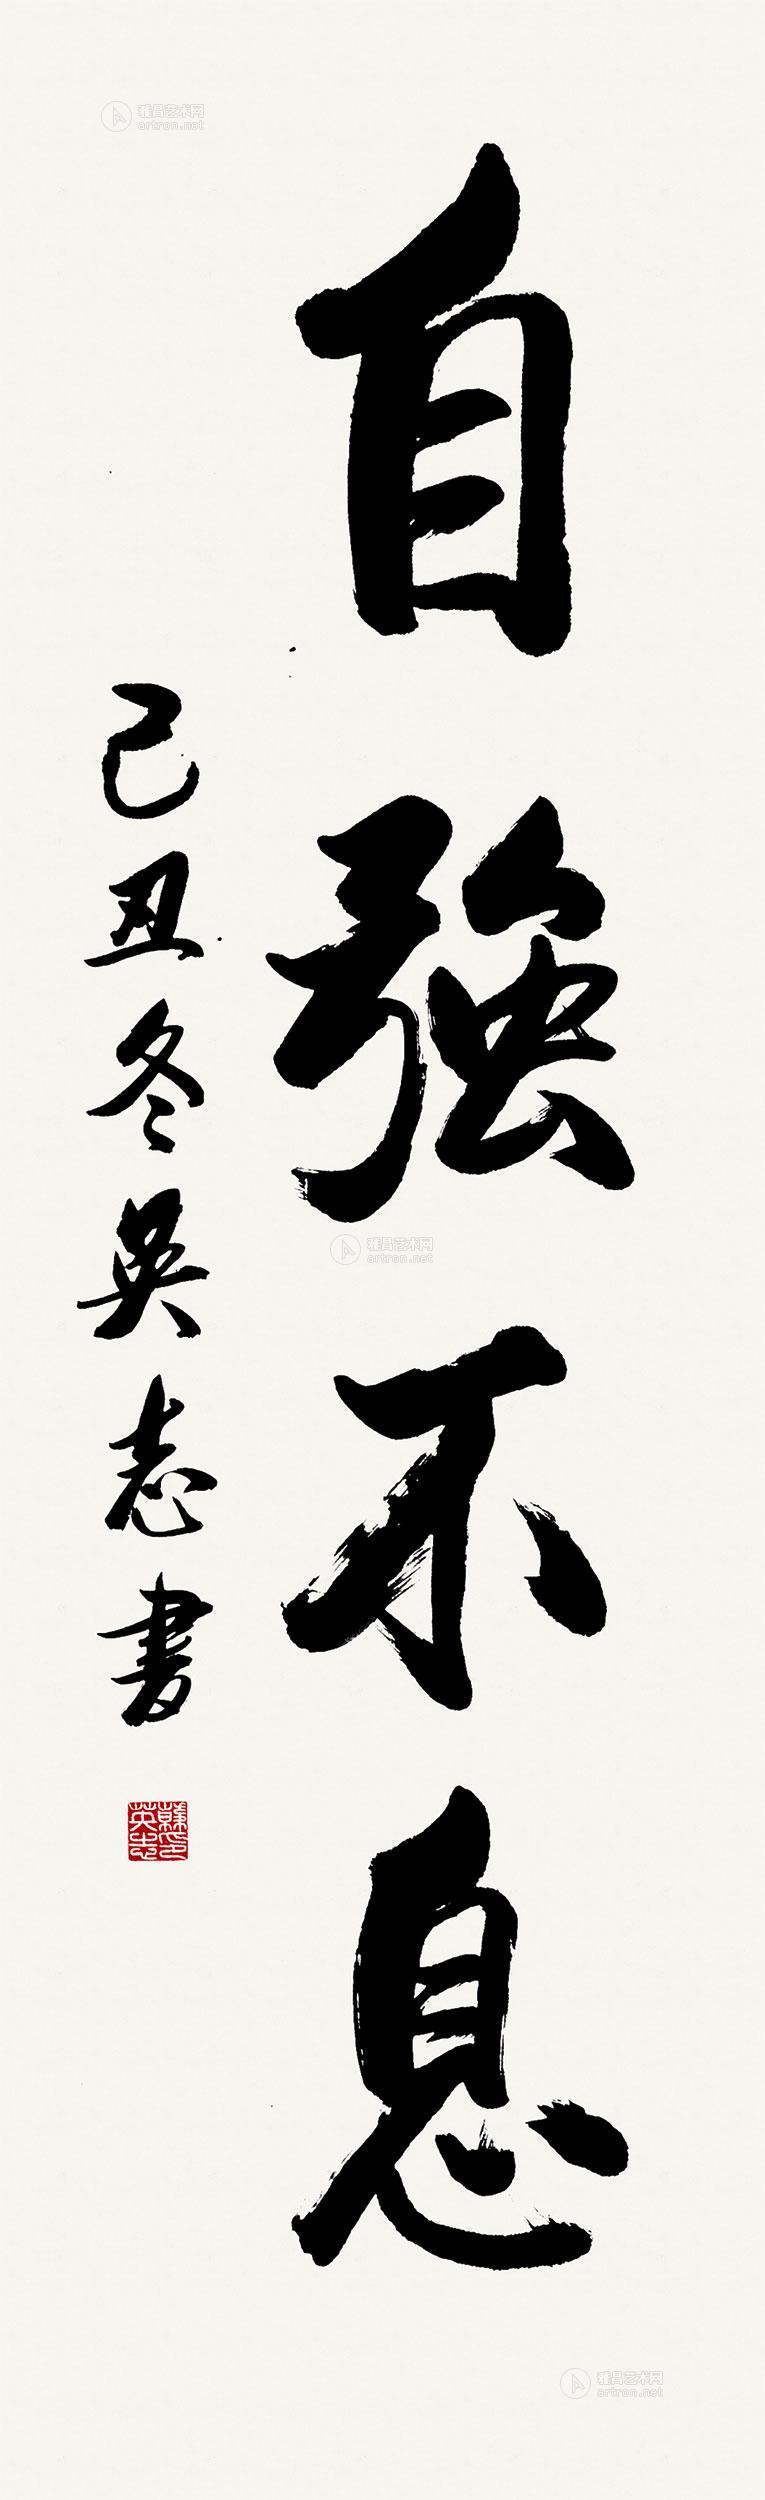 雅昌艺术网
artron.net
自強不息
己丑冬英志書
韓英志印
雅昌艺术网
artron.net
雅昌艺术网
artron.net